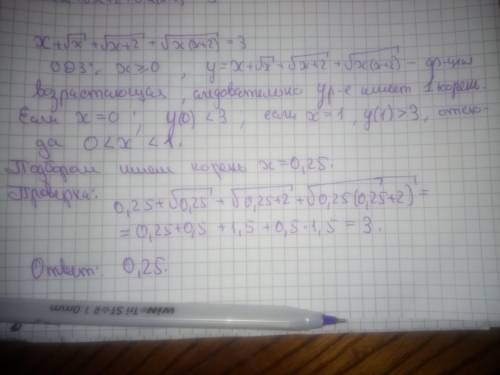 x+√x+√x+2+√x(x+2)=3
ООЗ: x≥0, y=x+√x+√x+2+√x(x+2) – ф-ция
возрастающая, следовательно ур-е имеет 1 корень
Если x=0, y(0)<3, если x=1, y(1)>3, отсю-
да 0<x<1.
Подбором ищем корень x=0,25.
Проверка: 0,25+√0,25+√0,25+2+√0,25(0,25+2)=
=0,25+0,5+1,5+0,5·1,5=3.
Ответ: 0,25.
win=Tri STAR 1.0mm